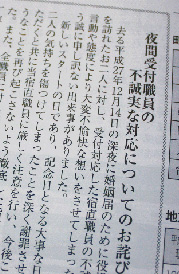 夜間受付職員の
不誠実な対応についてのお詫び
去る平成27年12月14日の深夜に婚姻届のために役
を訪れたお二人に対し、受付対応した宿直職員の不
言動や態度によりて大変不愉快な想いをさせてしまっ
う誠に申し訳ない出来事がありました。
新しいスタートの日であり、記念日となる大事な日
二人の気持ちを傷つけてしまったことを深く謝罪させ
ただくと共に当宿直職員に厳しく注意を行い、今後こ
うなことを再び起こさないよう徹底して
た。また、全職員